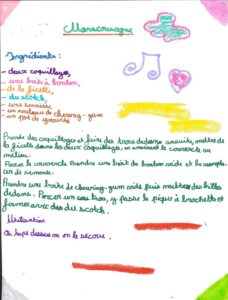 Maracouragne
Ingrédients :
- deux coquillages,
- une boîte à bonbon,
- de la ficelle,
- du scotch,
- une
- un de chewing-gum
- un pot de yaourte
Prende des coquillages et faire des trous dedans ensuite, mettre
de la ficelle dans les deux coquillages, en the couvercle au
milieu.
Percer le couvercle. Prendre une boit de bonbon vide et la remplacer
de semoule.
Prendre une boite de chewing-gum vide puis mettre des billes
dedans. Percer un trou, y passe le pique à brochette et
fermer avec des du scotch.
Utilisation
On tape dessus ou on le secoue.